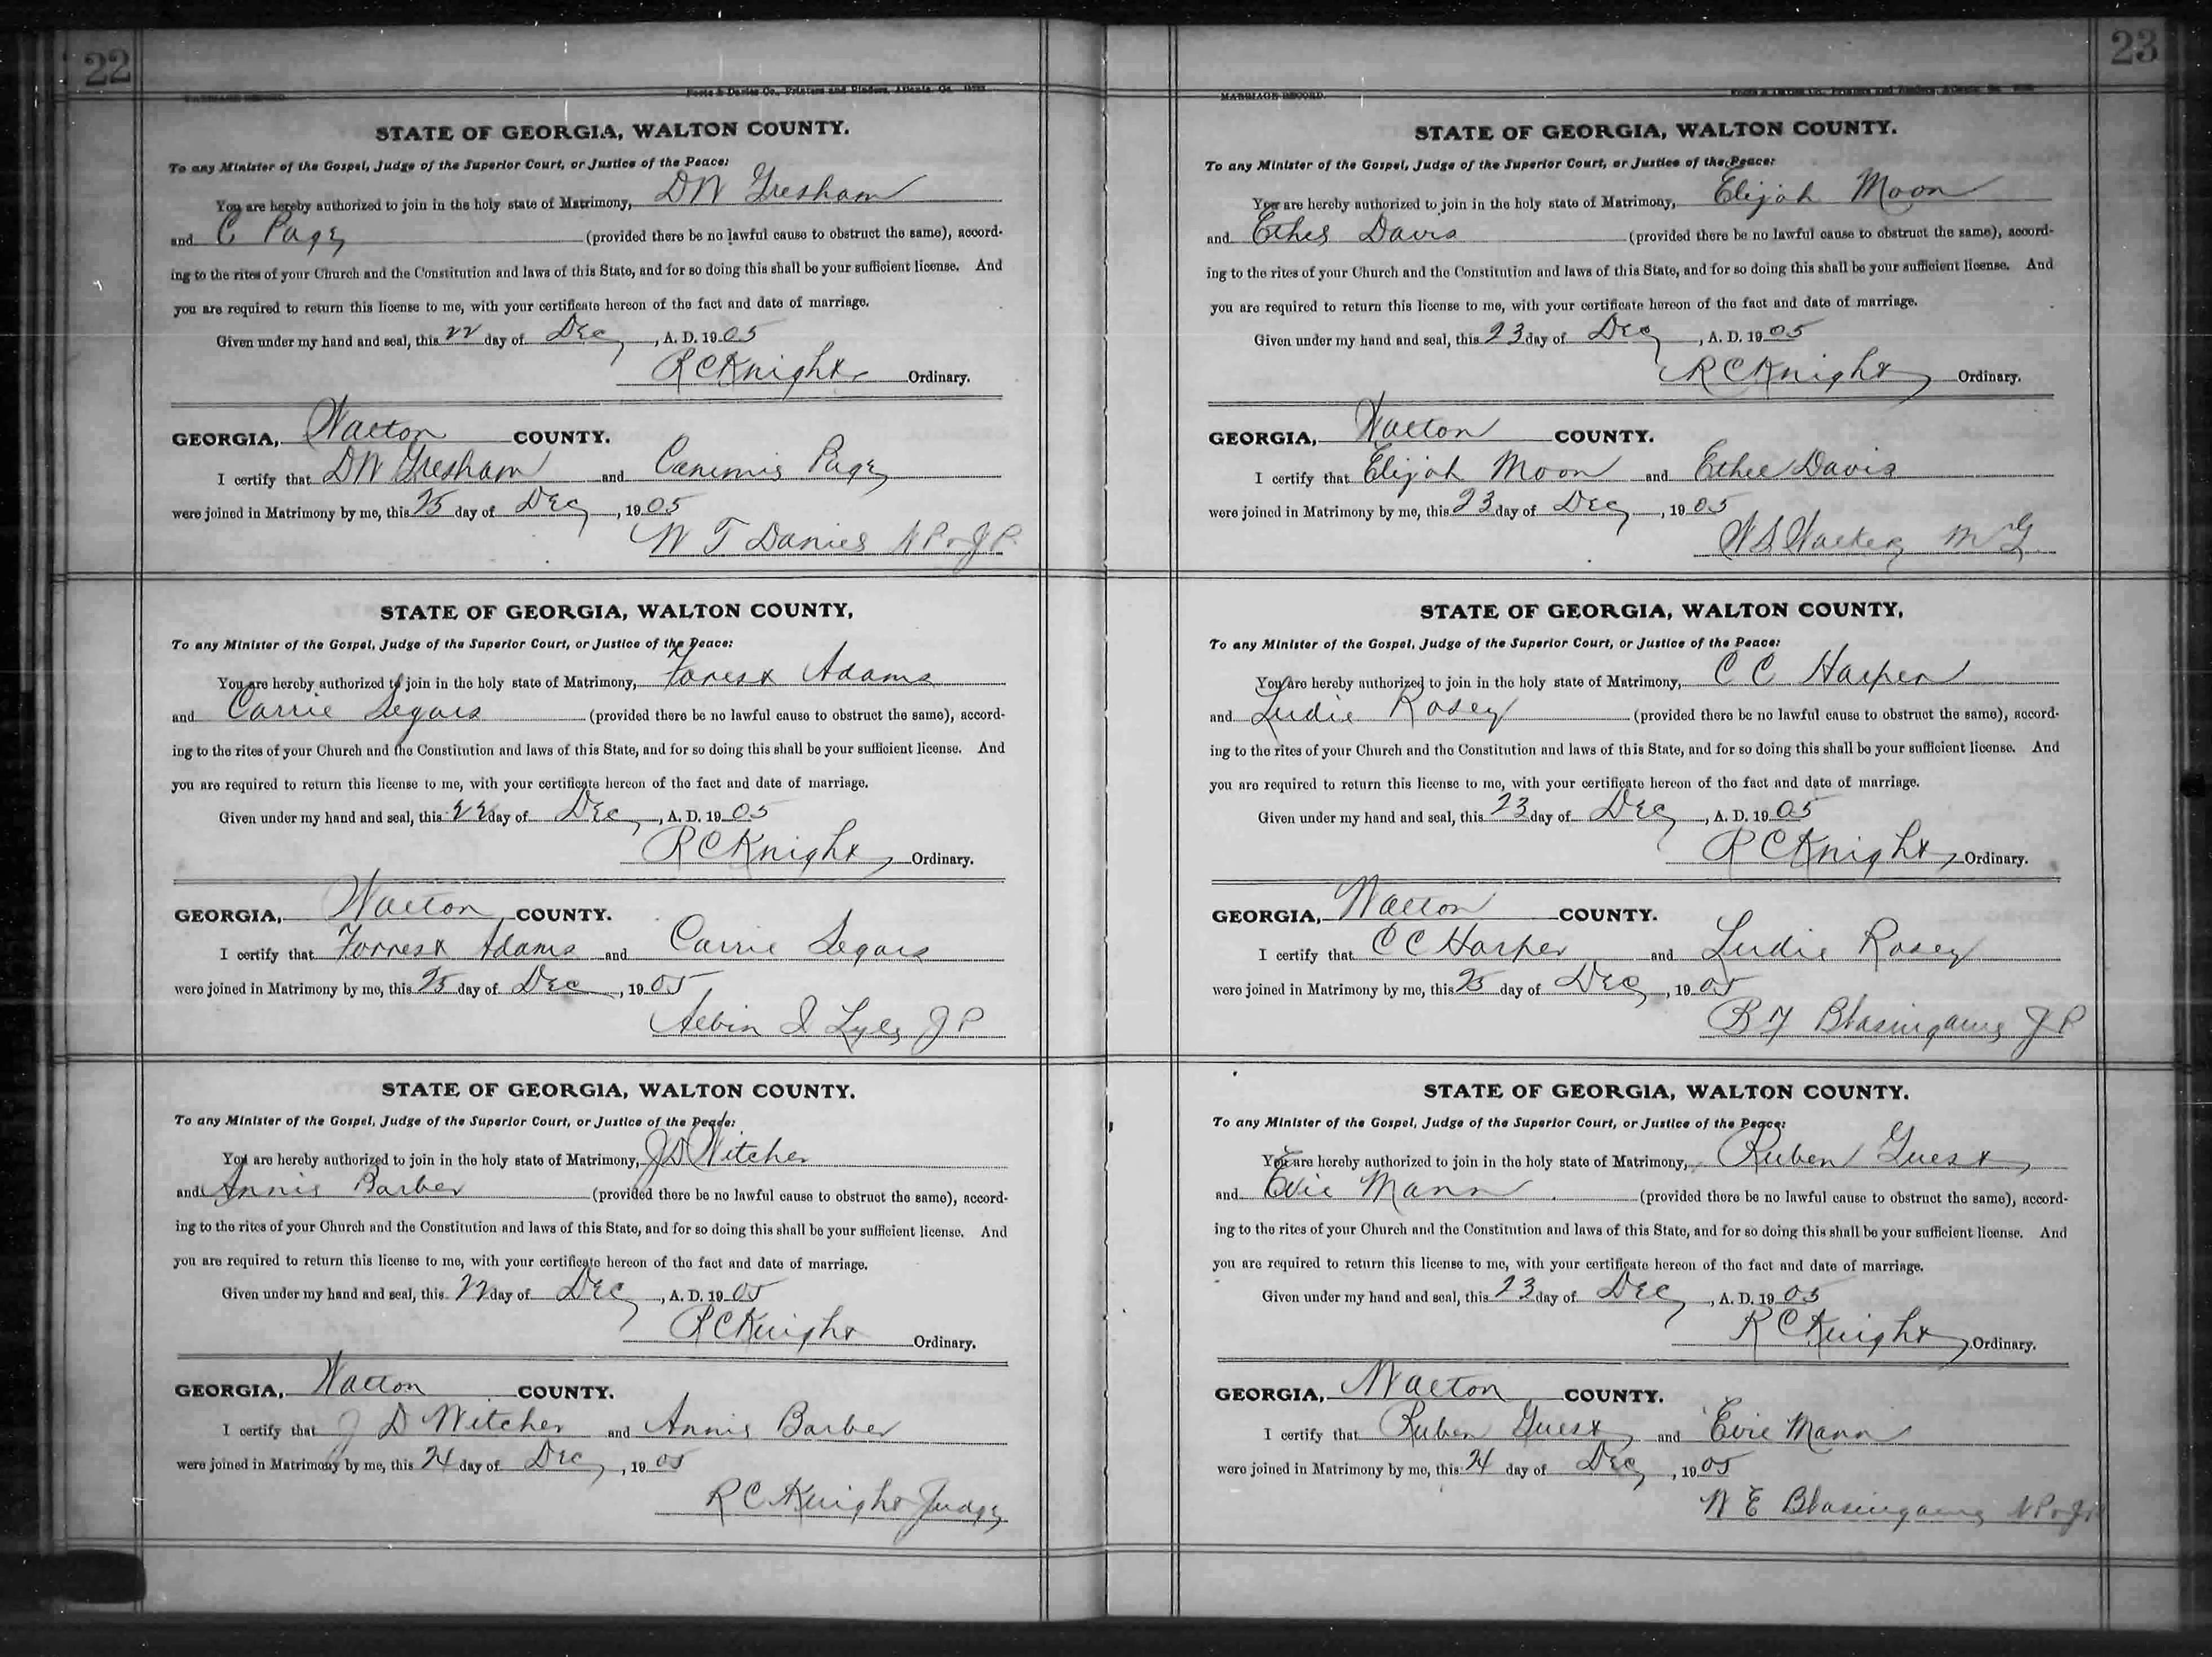 22
MARRIAGE RECORD.
Foote & Davies Co., Printers and Binders, Atlanta, Ga.
STATE OF GEORGIA, WALTON COUNTY.
To any Minister of the Gospel, Judge of the Superior Court, or Justice of the Peace:
You are hereby authorized to join in the holy state of Matrimony, D W Gresham
and C Page (provided there be no lawful cause to obstruct the same), accord-
ing to the rites of your Church and the Constitution and laws of this State, and for so doing this shall be your sufficient license. And
you are required to return this license to me, with your certificate hereon of the fact and date of marriage.
Given under my hand and seal, this 22 day of Dec, A. D. 1905
R C Knight Ordinary.
GEORGIA, Walton COUNTY.
I certify that D W Gresham and Page
were joined in Matrimony by me, this 25 day of Dec, 1905
W T Daniel N P & J P
STATE OF GEORGIA, WALTON COUNTY,
To any Minister of the Gospel, Judge of the Superior Court, or Justice of the Peace:
You are hereby authorized to join in the holy state of Matrimony, Forest Adams
and Carrie Segars (provided there be no lawful cause to obstruct the same), accord-
ing to the rites of your Church and the Constitution and laws of this State, and for so doing this shall be your sufficient license. And
you are required to return this license to me, with your certificate hereon of the fact and date of marriage.
Given under my hand and seal, this 22 day of Dec, A. D. 1905
R C Knight Ordinary.
GEORGIA, Walton COUNTY.
I certify that Forrest Adams and Carrie Segars
were joined in Matrimony by me, this 25 day of Dec, 1905
Albin I Lyle J P
STATE OF GEORGIA, WALTON COUNTY.
To any Minister of the Gospel, Judge of the Superior Court, or Justice of the Peace:
You are hereby authorized to join in the holy state of Matrimony, J D Witcher
and Annie Barber (provided there be no lawful cause to obstruct the same), accord-
ing to the rites of your Church and the Constitution and laws of this State, and for so doing this shall be your sufficient license. And
you are required to return this license to me, with your certificate hereon of the fact and date of marriage.
Given under my hand and seal, this 22 day of Dec, A. D. 1905
R C Knight Ordinary.
GEORGIA, Walton COUNTY.
I certify that J D Witcher and Annie Barber
were joined in Matrimony by me, this 24 day of Dec, 1905
R C Knight Judge
23
MARRIAGE RECORD.
STATE OF GEORGIA, WALTON COUNTY.
To any Minister of the Gospel, Judge of the Superior Court, or Justice of the Peace:
You are hereby authorized to join in the holy state of Matrimony, Elijah Moon
and Ethel Davis (provided there be no lawful cause to obstruct the same), accord-
ing to the rites of your Church and the Constitution and laws of this State, and for so doing this shall be your sufficient license. And
you are required to return this license to me, with your certificate hereon of the fact and date of marriage.
Given under my hand and seal, this 23 day of Dec, A. D. 1905
R C Knight Ordinary.
GEORGIA, Walton COUNTY.
I certify that Elijah Moon and Ethel Davis
were joined in Matrimony by me, this 23 day of Dec, 1905
W S Walker M G
STATE OF GEORGIA, WALTON COUNTY,
To any Minister of the Gospel, Judge of the Superior Court, or Justice of the Peace:
You are hereby authorized to join in the holy state of Matrimony, C C Harper
and Ludie Rosey (provided there be no lawful cause to obstruct the same), accord-
ing to the rites of your Church and the Constitution and laws of this State, and for so doing this shall be your sufficient license. And
you are required to return this license to me, with your certificate hereon of the fact and date of marriage.
Given under my hand and seal, this 23 day of Dec, A. D. 1905
R C Knight Ordinary.
GEORGIA, Walton COUNTY.
I certify that C C Harper and Ludie Rosey
were joined in Matrimony by me, this 25 day of Dec, 1905
B F Blasingame J P
STATE OF GEORGIA, WALTON COUNTY.
To any Minister of the Gospel, Judge of the Superior Court, or Justice of the Peace:
You are hereby authorized to join in the holy state of Matrimony, Ruben Guest
and Evie Mann (provided there be no lawful cause to obstruct the same), accord-
ing to the rites of your Church and the Constitution and laws of this State, and for so doing this shall be your sufficient license. And
you are required to return this license to me, with your certificate hereon of the fact and date of marriage.
Given under my hand and seal, this 23 day of Dec, A. D. 1905
R C Knight Ordinary.
GEORGIA, Walton COUNTY.
I certify that Ruben Guest and Evie Mann
were joined in Matrimony by me, this 24 day of Dec, 1905
W E Blasingame N P & J P